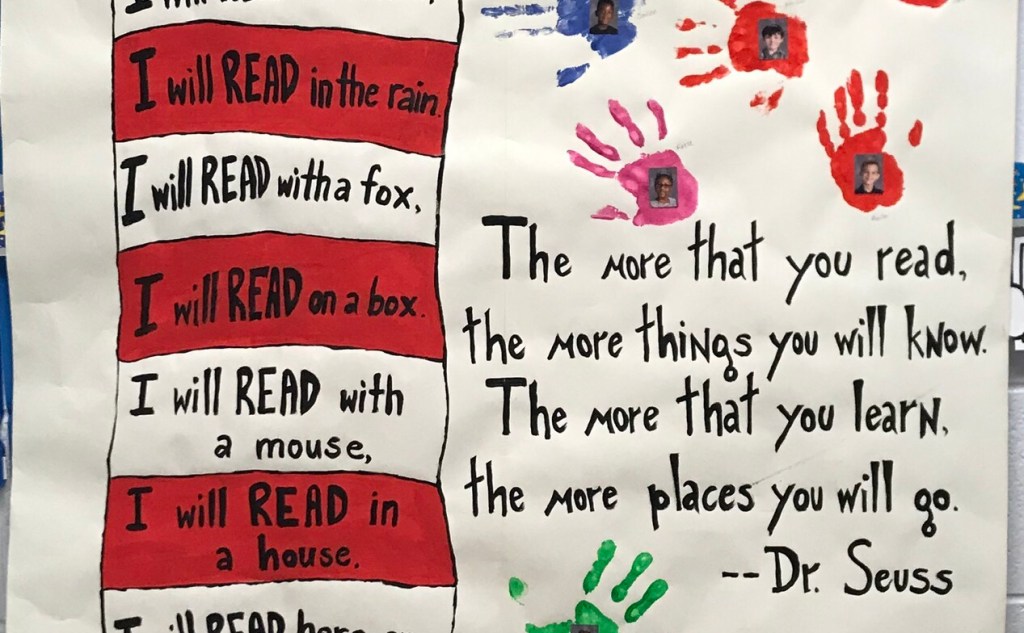 I will READ in the rain.
I will READ with a fox,
I will READ on a box.
I will READ with
a mouse,
I will READ in
a house.
I will READ here
The more that you read,
the more things you will know.
The more that you learn,
the more places you will go.
--Dr. Seuss